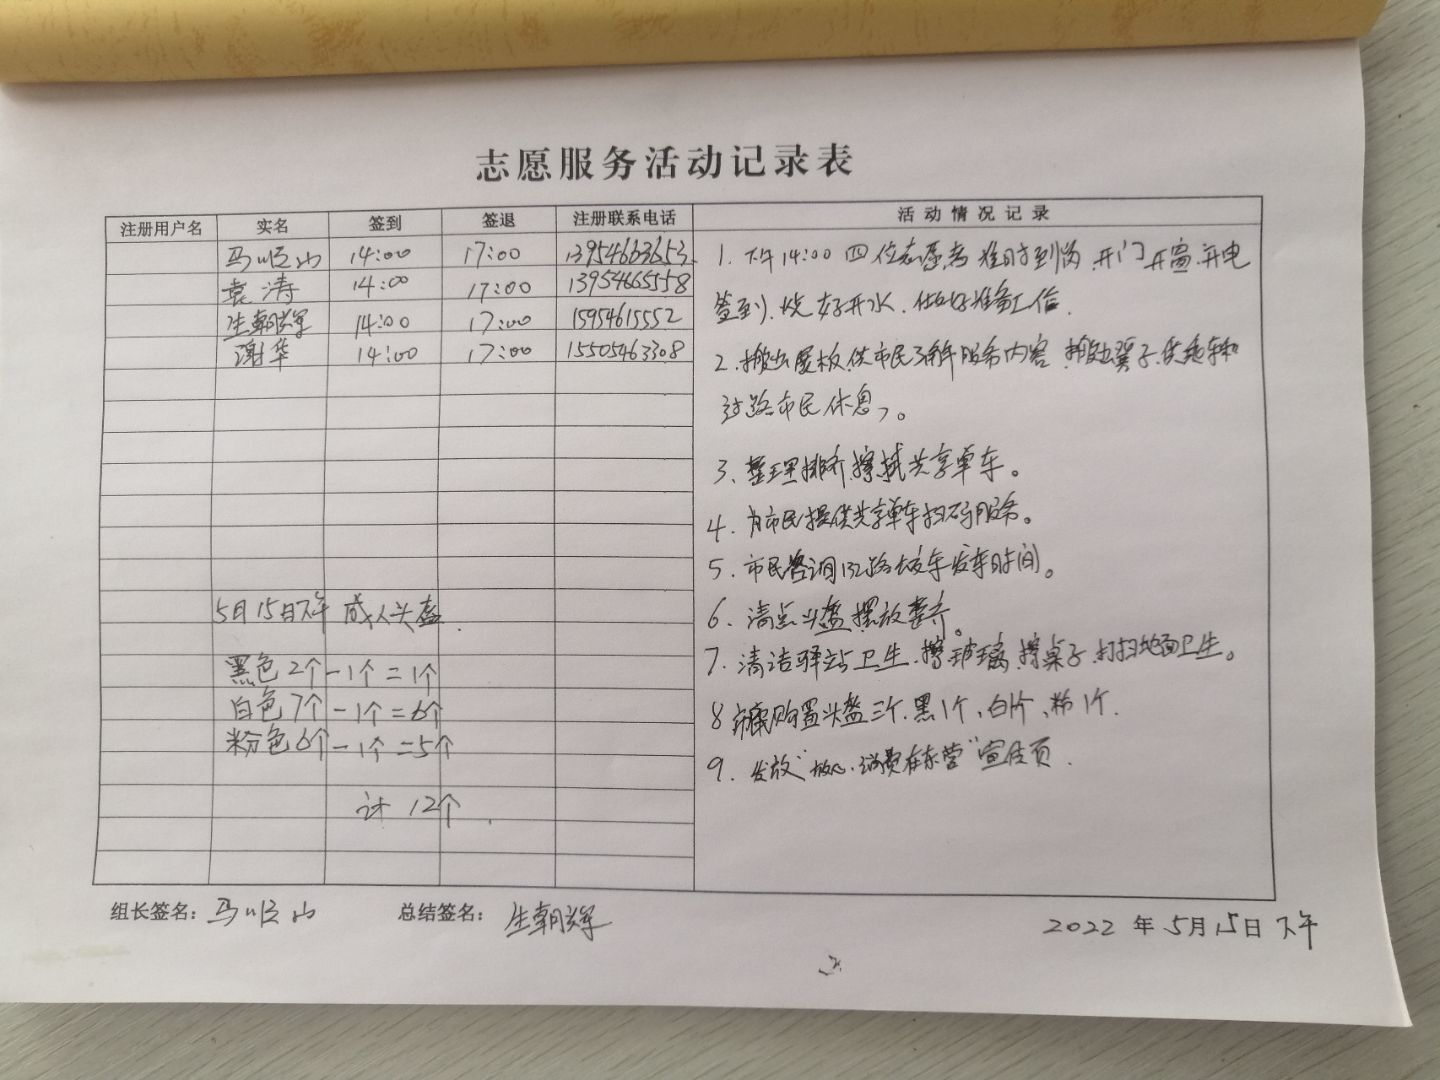 志愿服务活动记录表
注册用户名 实名 签到 签退 注册联系电话 活动情况记录
马顺山 14:00 17:00 13954663653
袁涛 14:00 17:00 13954665558
生朝辉 14:00 17:00 15954615552
谢华 14:00 17:00 15505463308
5月15日下午 成人头盔.
黑色2个-1个=1个
白色7个-1个=6个
粉色6个-1个=5个
计 12个.
1. 下午14:00 四位志愿者准时到岗.开门开窗.开电
签到、烧好开水、做好准备工作.
2. 搬出展板.供市民了解服务内容.搬出凳子.供
过路市民休息。
3、整理排齐擦拭共享单车。
4、为市民提供共享单车扫码服务。
5、市民咨询132路公交车发车时间。
6、清点头盔摆放整齐。
7、清洁驿站卫生.擦玻璃.擦桌子.打扫地面卫生。
8 市民购置头盔三个.黑1个、白1个、粉1个.
9. 发放"放心消费在东营"宣传页.
组长签名：马顺山 总结签名：生朝辉 2022年5月15日下午